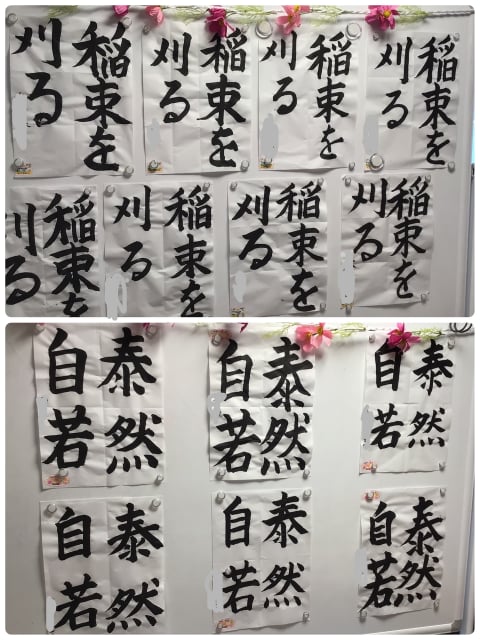 稲束を
刈る
稲束を
刈る
稲束を
刈る
稲束を
刈る
稲束を
刈る
稲束を
刈る
稲束を
刈る
稲束を
刈る
泰然
自若
泰然
自若
泰然
自若
泰然
自若
泰然
自若
泰然
自若